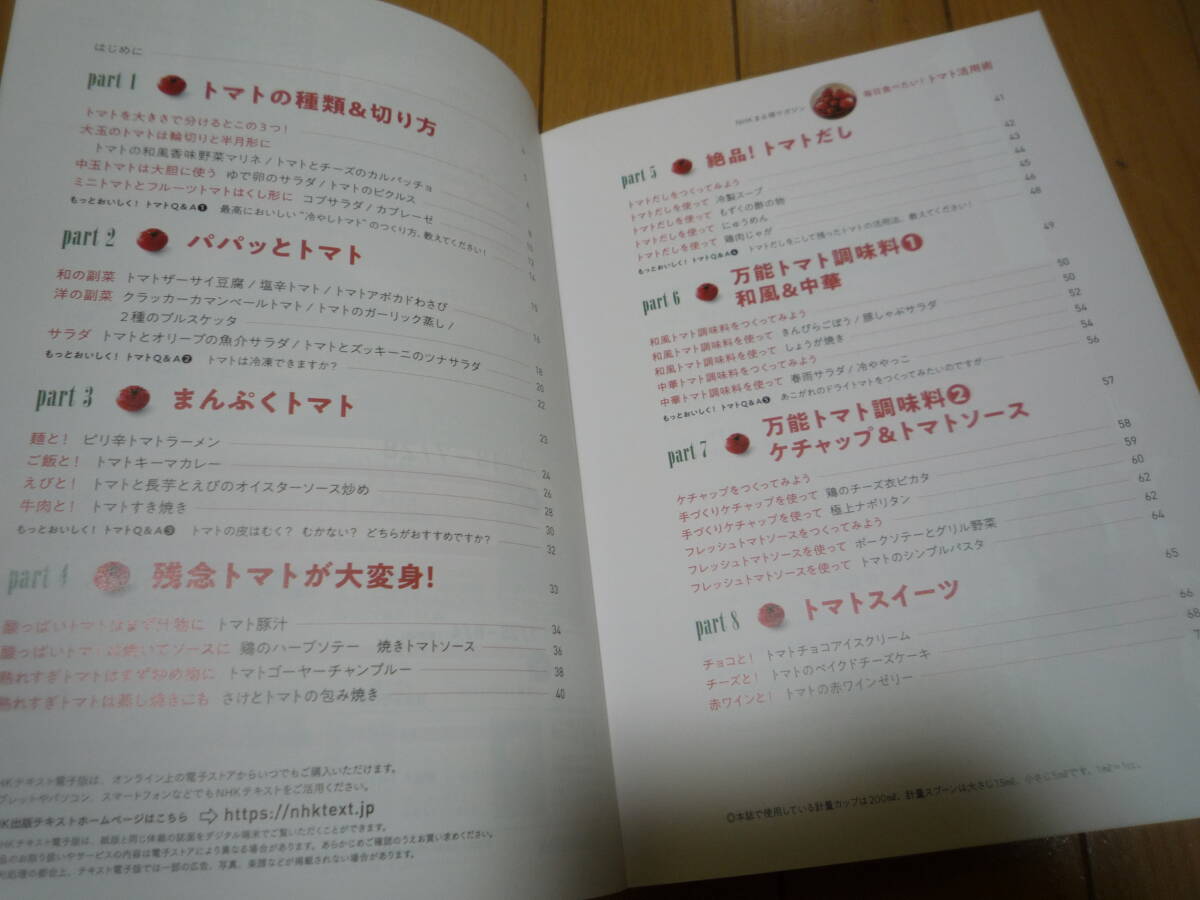 はじめに
part 1 トマトの種類&切り方
トマトを大きさで分けるとこの3つ!
大玉のトマトは輪切りと半月形に
トマトの和風香味野菜マリネ/トマトとチーズのカルパッチョ
中玉トマトは大胆に使う ゆで卵のサラダ/トマトのピクルス
ミニトマトとフルーツトマトはくし形に コブサラダ/カプレーゼ
もっとおいしく! トマトQ&A❶ 最高においしい“冷やしトマト”のつくり方、教えてください! 14
part 2 パパッとトマト 15
和の副菜 トマトザーサイ豆腐/塩辛トマト/トマトアボカドわさび 16
洋の副菜 クラッカーカマンベールトマト/トマトのガーリック蒸し/
2種のブルスケッタ 18
サラダ トマトとオリーブの魚介サラダ/トマトとズッキーニのツナサラダ 20
もっとおいしく! トマトQ&A❷ トマトは冷凍できますか? 22
part 3 まんぷくトマト 23
麺と! ピリ辛トマトラーメン 24
ご飯と! トマトキーマカレー 26
えびと! トマトと長芋とえびのオイスターソース炒め 28
牛肉と! トマトすき焼き 30
もっとおいしく! トマトQ&A❸ トマトの皮はむく? むかない? どちらがおすすめですか? 32
part 4 残念トマトが大変身! 33
酸っぱいトマトはまず汁物に トマト豚汁 34
酸っぱいトマトは焼いてソースに 鶏のハーブソテー 焼きトマトソース 36
熟れすぎトマトはまず炒め物に トマトゴーヤーチャンプルー 38
熟れすぎトマトは蒸し焼きにも さけとトマトの包み焼き 40
HKテキスト電子版は、オンライン上の電子ストアからいつでもご購入いただけます。
ブレットやパソコン、スマートフォンなどでもNHKテキストをご活用ください。
HK出版テキストホームページはこちら ⇨ https://nhktext.jp
HKテキスト電子版は、紙版と同じ体裁の誌面をデジタル端末でご覧いただくことができます。
品のお取り扱いやサービスの内容は電子ストアにより異なる場合があります。あらかじめご確認のうえお買い求めください。
利処理の都合上、テキスト電子版では一部の広告、写真、楽譜などが掲載されない場合があります。
NHKまる得マガジン 毎日食べたい! トマト活用術
part 5 絶品! トマトだし 41
トマトだしをつくってみよう 42
トマトだしを使って 冷製スープ 43
トマトだしを使って もずくの酢の物 44
トマトだしを使って にゅうめん 45
トマトだしを使って 鶏肉じゃが 46
もっとおいしく! トマトQ&A❹ トマトだしをこして残ったトマトの活用法、教えてください! 48
part 6 万能トマト調味料❶
和風&中華 49
和風トマト調味料をつくってみよう 50
和風トマト調味料を使って きんぴらごぼう/豚しゃぶサラダ 50
和風トマト調味料を使って しょうが焼き 52
中華トマト調味料をつくってみよう 54
中華トマト調味料を使って 春雨サラダ/冷ややっこ 54
もっとおいしく! トマトQ&A❺ あこがれのドライトマトをつくってみたいのですが 56
part 7 万能トマト調味料❷
ケチャップ&トマトソース 57
ケチャップをつくってみよう 58
手づくりケチャップを使って 鶏のチーズ衣ピカタ 59
手づくりケチャップを使って 極上ナポリタン 60
フレッシュトマトソースをつくってみよう 62
フレッシュトマトソースを使って ポークソテーとグリル野菜 62
フレッシュトマトソースを使って トマトのシンプルパスタ 64
part 8 トマトスイーツ 65
チョコと! トマトチョコアイスクリーム 66
チーズと! トマトのベイクドチーズケーキ 68
赤ワインと! トマトの赤ワインゼリー
◎本誌で使用している計量カップは200ml、計量スプーンは大さじ15ml、小さじ5mlです。1ml=1cc。